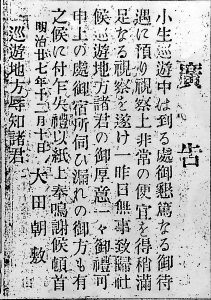 廣告
小生巡遊中は到る處御懇篤なる御待
遇に預り視察上非常の便宜を得稍滿
足なる視察を遂け一昨日無事致歸社
候巡遊地方諸君の御厚意一々御禮可
申上の處御宿所伺ひ漏れの御方も有
之候に付乍失禮以紙上奉鳴謝候頓首
明治廿七年十二月十日　大田朝敷
巡遊地方辱知諸君